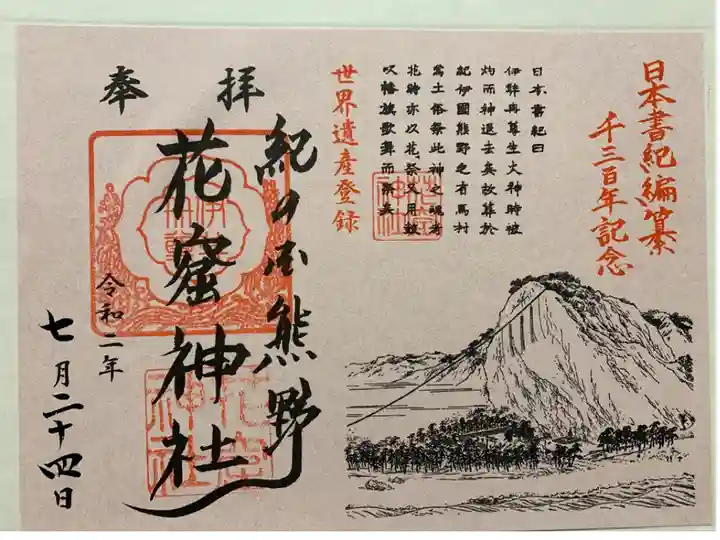 日本書紀編纂
千三百年記念
日本書紀曰
伊弉冉尊生火神時被
灼而神退去矣故葬於
紀伊國熊野之有馬村
焉土俗祭此神之魂者
花時亦以花祭又用鼓
吹幡旗歌舞而祭矣
世界遺産登録
奉拝
紀の国熊野
花窟神社
令和二年
七月二十四日
花窟神社